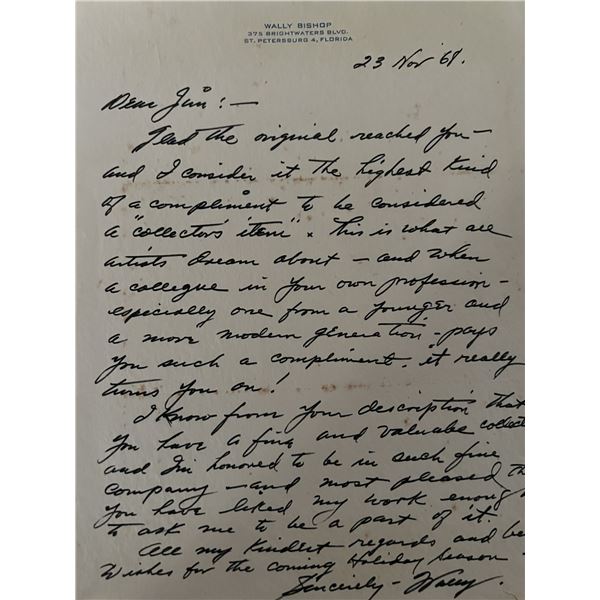 WALLY BISHOP
375 BRIGHTWATERS BLVD.
ST. PETERSBURG 4, FLORIDA
23 Nov 69.
Dear Jim:—
Glad the original reached you—
and I consider it the highest kind
of a compliment to be considered
a "collectors item" x This is what all
artists dream about — and when
a collegue in your own profession—
especially one from a younger and
a more modern generation - pays
you such a compliment, it really
turns you on!
I know from your description that
you have a fine and valuable collect
and I'm honored to be in such fine
company — and most pleased th
you have liked my work enoug
to ask me to be a part of it.
All my kindest regards and be
wishes for the coming Holiday Season—
Sincerely— Wally.